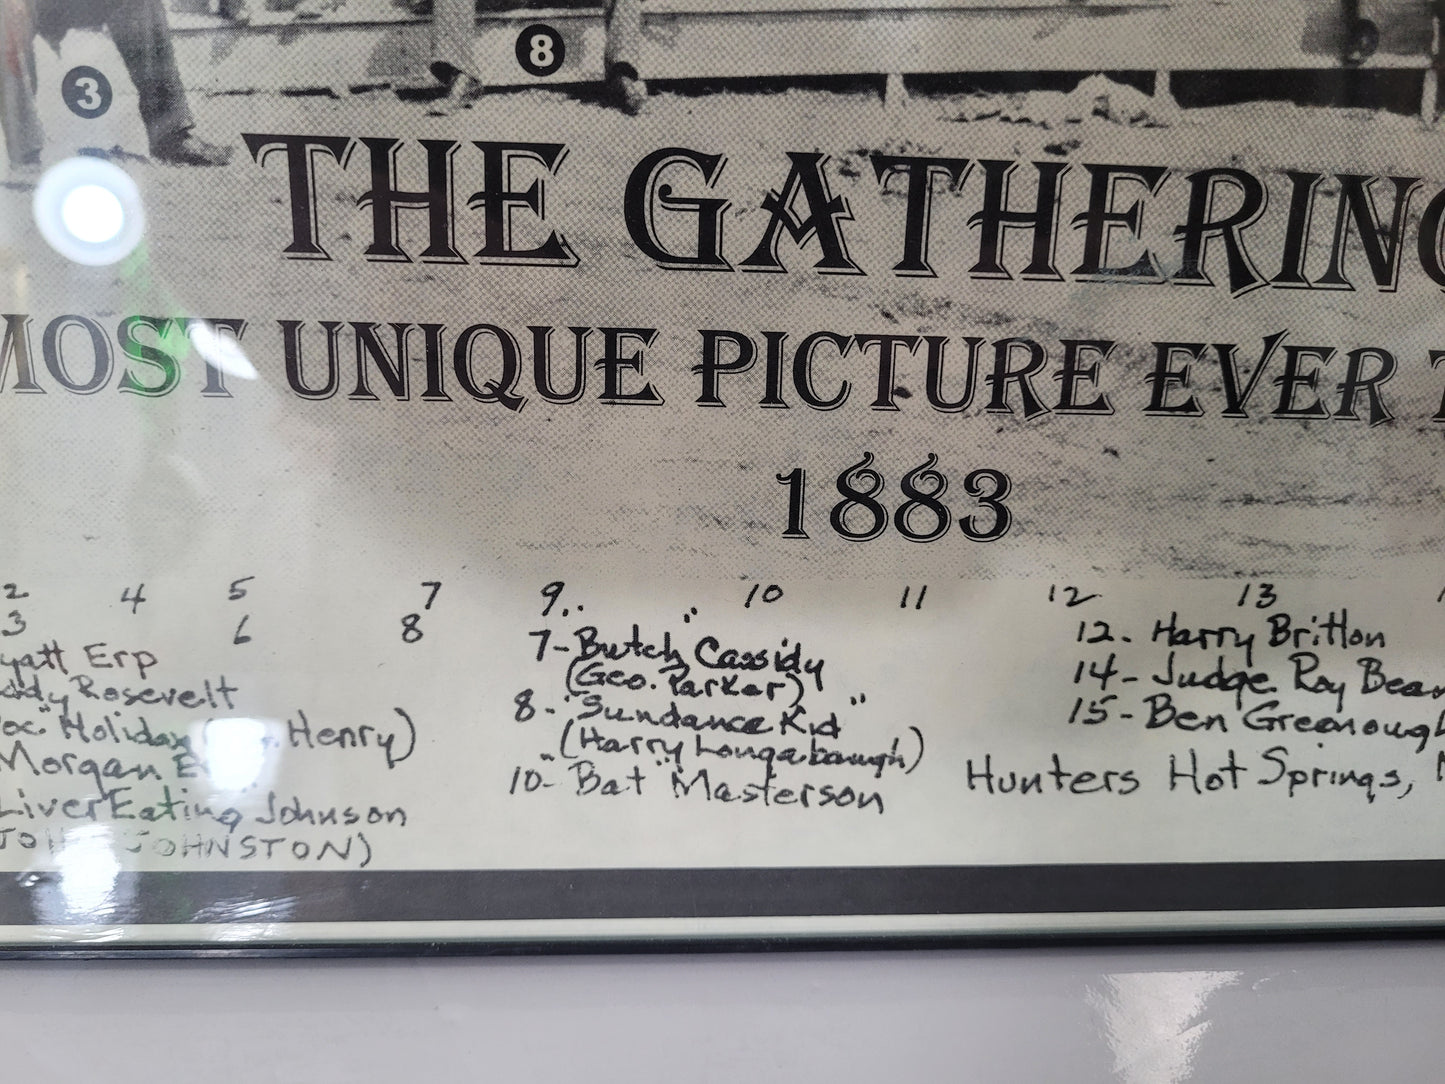 8
3
THE GATHERING
MOST UNIQUE PICTURE EVER
1883
2 4 5 7 9.. " 10 11 12 13
3 6 8
yatt Erp
ddy Rosevelt
oc" Holiday Henry)
Morgan
Liver Eating Johnson
JOHNSTON)
7- Butch" Cassidy
(Geo. Parker)
8- "Sundance Kid"
(Harry Longabaugh)
10- "Bat" Masterson
12- Harry Britton
14- Judge Roy Bean
15- Ben Greenough
Hunters Hot Springs,